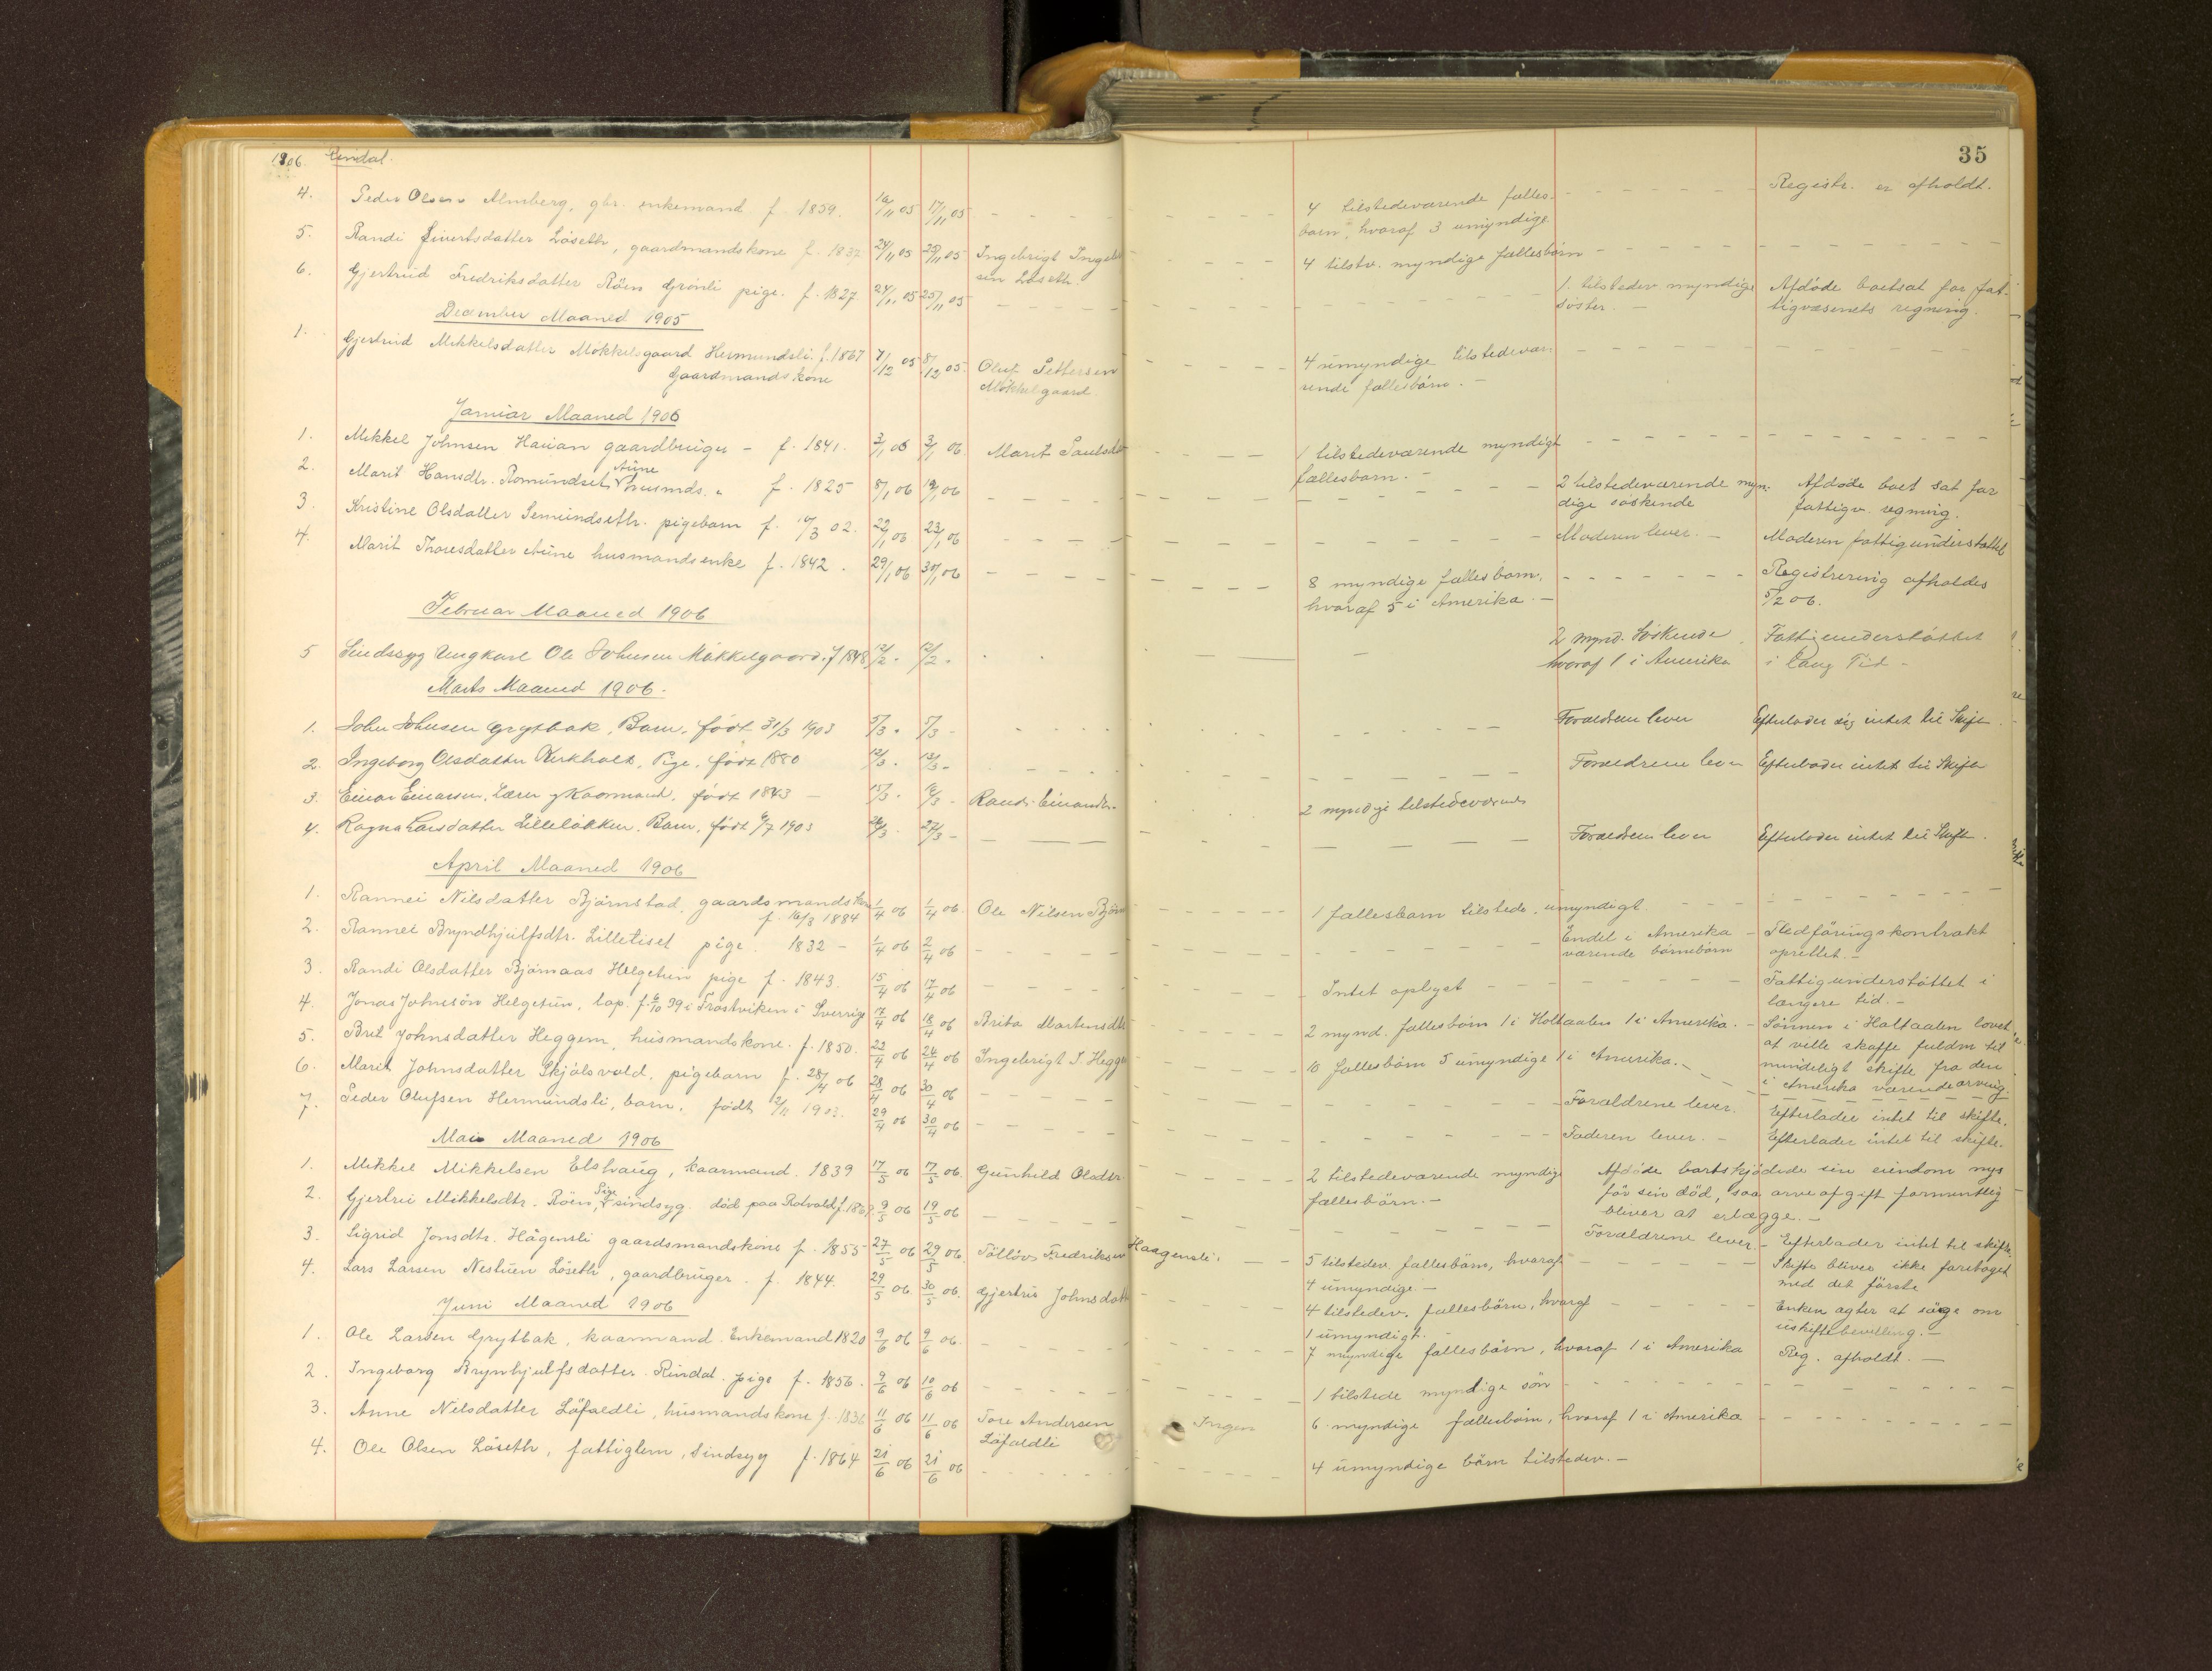 1906. Rindal.
35
4. Peder Olsen Almberg, gbr. enkemand f. 1859. 16/11 05 17/11 05 4 tilstedeværende fælles- Registr. er afholdt.
børn, hvoraf 3 umyndige
5. Randi Sivertsdatter Löseth, gaardmandskone f. 1832 24/11 05 25/11 05 Ingebrigt 4 tilstv. myndige fællesbörn
sen Löseth.
6. Gjertrud Fredriksdatter Röen Grönli pige. f. 1827 24/11 05 25/11 05 1 tilstedev myndige Afdöde bortsat for fat-
söster. tigvæsenets regning.
December Maaned 1905
1. Gjertrud Mikkelsdatter Mökkelsgaard Hermundsli. f. 1867 7/12 05 8/12 05. Oluf Pettersen 4 umyndige tilstedevæ-
Gaardmandskone Mökkelgaard. rende fællesbörn.
Januar Maaned 1906
1. Mikkel Johnsen Hauan gaardbruger - f. 1841. 3/1 06 3/1 06. Marit 1 tilstedeværende myndigt
fællesbarn.
2. Marit Hansdtr. Romundset Aune husmds. f. 1825 8/1 06 19/1 06 2 tilstedeværende myn- Afdöde bort sat for
dige söskende fattigv. regning.
3. Kristine Olsdatter Semundseth. pigebarn f. 10/3 02. 22/1 06 23/1 06 Moderen lever. Moderen fattigunderstöttet
4. Marit Thoresdatter Aune husmandsenke f. 1842. 29/1 06 30/1 06 8 myndige fællesbörn, Registrering afholdes
hvoraf 5 i Amerika. 5/2 06.
Februar Maaned 1906
5 Sindssyg Ungkarl Ole Johnsen Mökkelgaard. f 1848 12/2. 12/2. 2 mynd. Söskende Fattigunderstöttet
hvoraf 1 i Amerika i lang Tid -
Marts Maaned 1906.
1. John Johnsen Grytbak, Barn, födt 31/3 1903 5/3. 5/3 - Forældrene lever Efterlader sig intet til Skifte.
2. Ingeborg Olsdatter Kirkholt, Pige, födt 1880 12/3. 13/3 - Forældrene lever Efterlader intet til Skifte
3. Einar Einarsen, Lærer & Kaarmand, födt 1843 15/3. 16/3 - Randi Einarsdtr. 2 myndige tilstedeværende
4. Ragna Larsdatter Lillelökken, Barn, födt 6/7 1903 26/3. 27/3 - Forældrene lever Efterlader intet til Skifte.
April Maaned 1906
1. Rannei Nilsdatter Björnstad, gaardsmandskone 1/4 06 1/4 06. Ole Nilsen 1 fællesbarn tilstede, umyndigt.
f. 16/3 1884
2. Rannei Bryndhjulfsdtr. Lilletiset pige. 1832 - 1/4 06 2/4 06 Endel i Amerika Fledföringskontrakt
værende börnebörn oprettet.
3. Randi Olsdatter Björnaas Helgetun pige f. 1843. 15/4 06 17/4 06 Intet oplyst Fattigunderstöttet i
længere tid. -
4. Jonas Johnsön Helgetun, lap. f. 6/10 39 i Frostviken i Sverrige 17/4 06 18/4 06 Brita Martinsdtr 2 mynd. fællesbörn 1 i Holtaalen 1 i Amerika. - Sönnen i Holtaalen lovet
at ville skaffe fuldm til
mindeligt skifte fra den
i Amerika værende arving.
5. Brit Johnsdatter Heggem, husmandskone. f. 1850. 22/4 06 24/4 06 Ingebrigt J. 10 fællesbörn 5 umyndige 1 i Amerika.
6. Marit Johnsdatter Skjölsvold, pigebarn f. 28/4 06 28/4 06 30/4 06 Forældrene lever. Efterlader intet til skifte.
7. Peder Olufsen Hermundsli, barn, födt 2/11 1903. 29/4 06 30/4 06 Faderen lever. - Efterlader intet til skifte.
Mai Maaned 1906
1. Mikkel Mikkelsen Elshaug, kaarmand. 1839 17/5 06 17/5 06. Gunhild Olsdtr. 2 tilstedeværende myndige Afdöde bortskjödede sin eiendom nys
fællesbörn. - för sin död, saa arveafgift formentlig
bliver at erlægge. -
2. Gjertrü Mikkelsdtr. Röen, Pige sindsyg. död paa Rotvold f. 1869. 9/5 06 19/5 06 Forældrene lever. - Efterlader intet til skifte.
3. Sigrid Jonsdtr. Hågensli gaardsmandskone f. 1855 27/5 06 29/5 06. Tollöv Fredriksen Haagensli. 5 tilstedev. fællesbörn, hvoraf Skifte bliver ikke foretaget
4 umyndige. - med det förste
4. Lars Larsen Nestuen Löseth, gaardbruger. f. 1844. 29/5 06. 30/5 06. Gjertrü 4 tilstedev. fællesbörn, hvoraf Enken agter at söge om
1 umyndigt. uskiftebevilling. -
Juni Maaned 1906
1. Ole Larsen Grytbak, kaarmand. Enkemand 1820 9/6 06 9/6 06. 7 myndige fællesbörn, hvoraf 1 i Amerika Reg. afholdt. -
2. Ingeborg Brynhjulfsdatter. Rindal. pige f. 1856. 9/6 06 10/6 06 1 tilstede myndige sön
3. Anne Nilsdatter Löfaldli, husmandskone f. 1836 11/6 06 11/6 06 Tore Andersen Ingen 6 myndige fællesbörn, hvoraf 1 i Amerika
Löfaldli
4. Ole Olsen Löseth, fattiglem, Sindsyg f. 1864 21/6 06 21/6 06 4 umyndige börn tilstedev. -